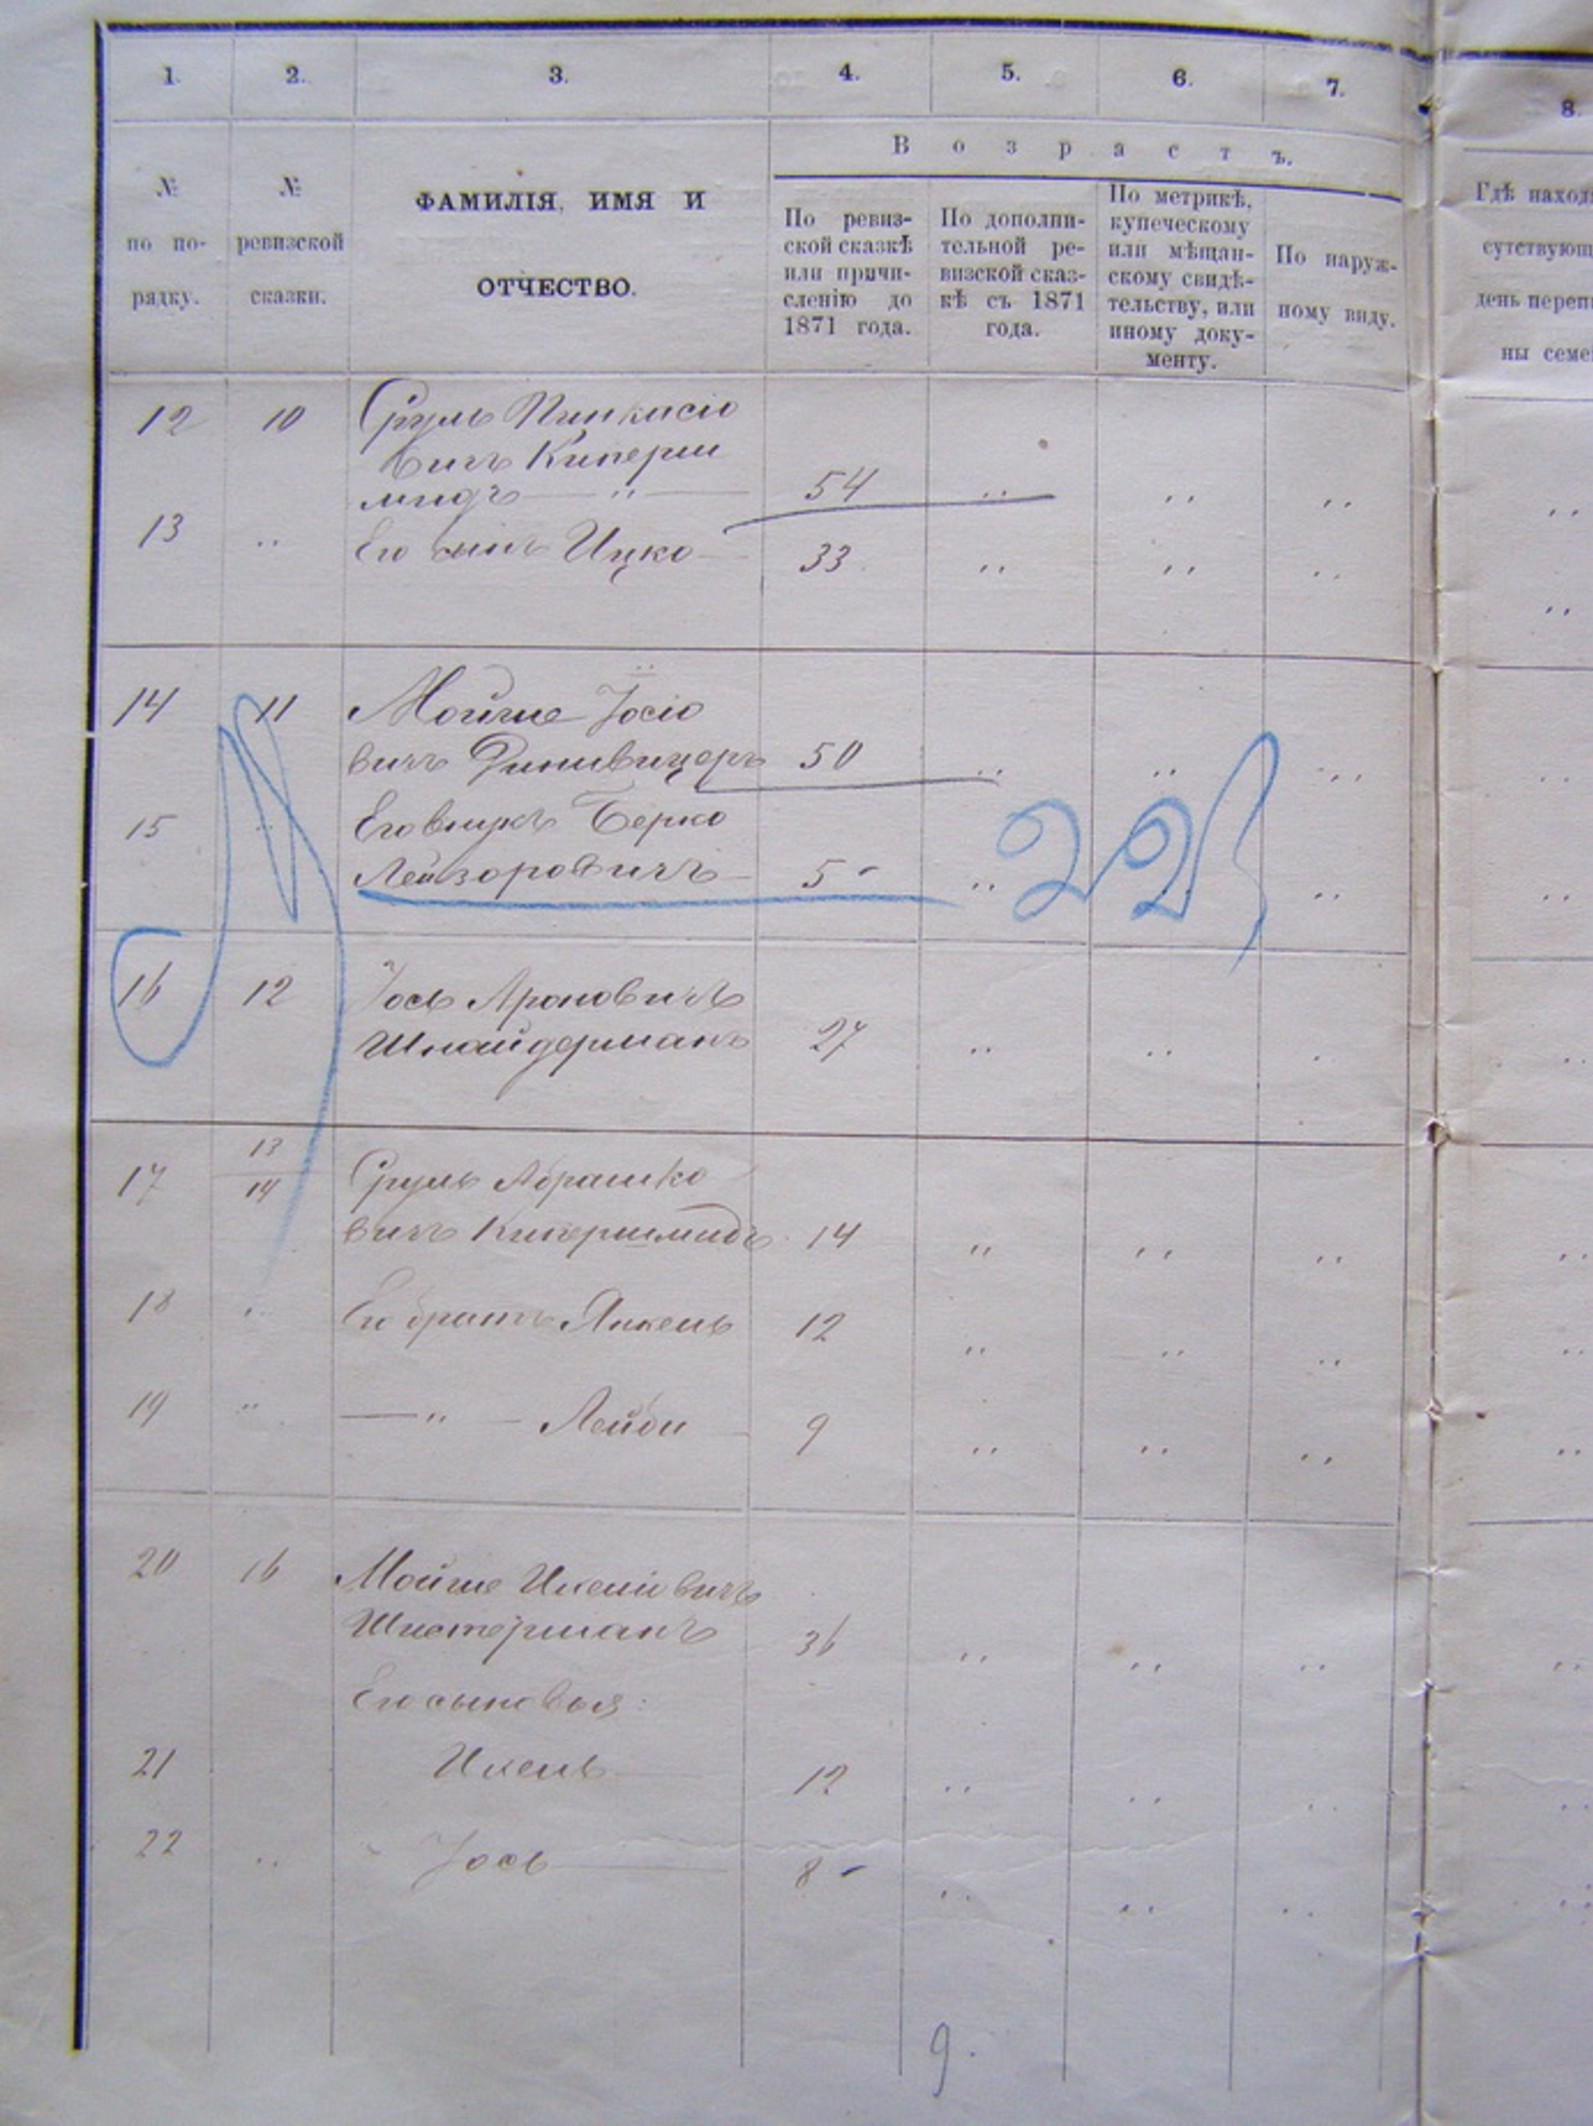 1. 2. 3. 4. 5. 6. 7. 8.
№ по порядку.
№ ревизской сказки.
ФАМИЛІЯ, ИМЯ И
ОТЧЕСТВО.
Возрастъ.
По ревиз-
ской сказкѣ
или причи-
сленію до
1871 года.
По дополни-
тельной ре-
визской сказ-
кѣ съ 1871
года.
По метрикѣ,
купеческому
или мѣщан-
скому свидѣ-
тельству, или
иному доку-
менту.
По наруж-
ному виду.
Гдѣ наход
сутствующ
день переп
ны семе
12 10 Сруль Пинкасіо
вичъ Киперш
мидъ — " — 54 " " "
13 " Его сынъ Ицко 33 " " "
14 11 Мойше Іосіо
вичъ 50 " " "
15 " Его внукъ Берко
Лейзоровичъ 5 " "
22
16 12 Іось Ароновичъ
Шнайдерманъ 27 " "
17 13/14 Сруль Абрашко
вичъ Кипершмидъ 14 " " "
18 " Его братъ Янкель 12 " " "
19 " — " — Лейби 9 " " "
20 16 Мойше Ихеліовичъ
Шистерманъ 36 " " "
Его сыновья:
21 Ихель 12 " " "
22 " Іось 8 " " "
9.